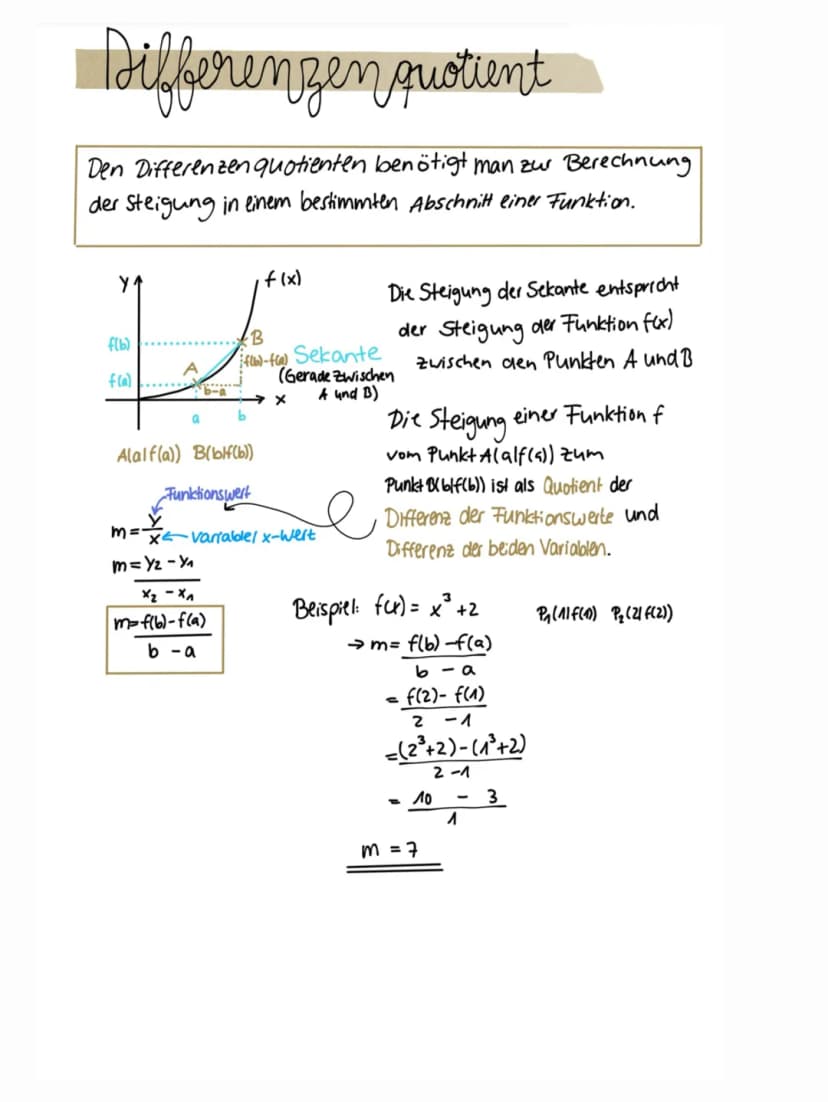 Differenzenquotient
Den Differenzenquotienten benötigt man zur Berechnung
der Steigung in einem bestimmten Abschnitt einer Funktion.
y
f(x)
f(b)
B
f(b)-f(a)
Sekante
(Gerade zwischen
A und B)
A
f(a)
b-a
x
a
b
A(a|f(a)) B(b|f(b))
Die Steigung der Sekante entspricht
der Steigung der Funktion f(x)
zwischen den Punkten A und B
Die Steigung einer Funktion f
vom Punkt A(a|f(a)) zum
Punkt B(b|f(b)) ist als Quotient der
Differenz der Funktionswerte und
Differenz der beiden Variablen.
Funktionswert
m = y/x
Variable/ x-Wert
m = y₂ - y₁
x₂ - x₁
m = f(b)-f(a)
b - a
Beispiel: f(x) = x³ +2
P₁(1|f(1)) P₂(2|f(2))
→ m= f(b) -f(a)
b - a
= f(2)- f(1)
2 -1
=(2³+2)-(1³+2)
2 -1
= 10 - 3
1
m = 7